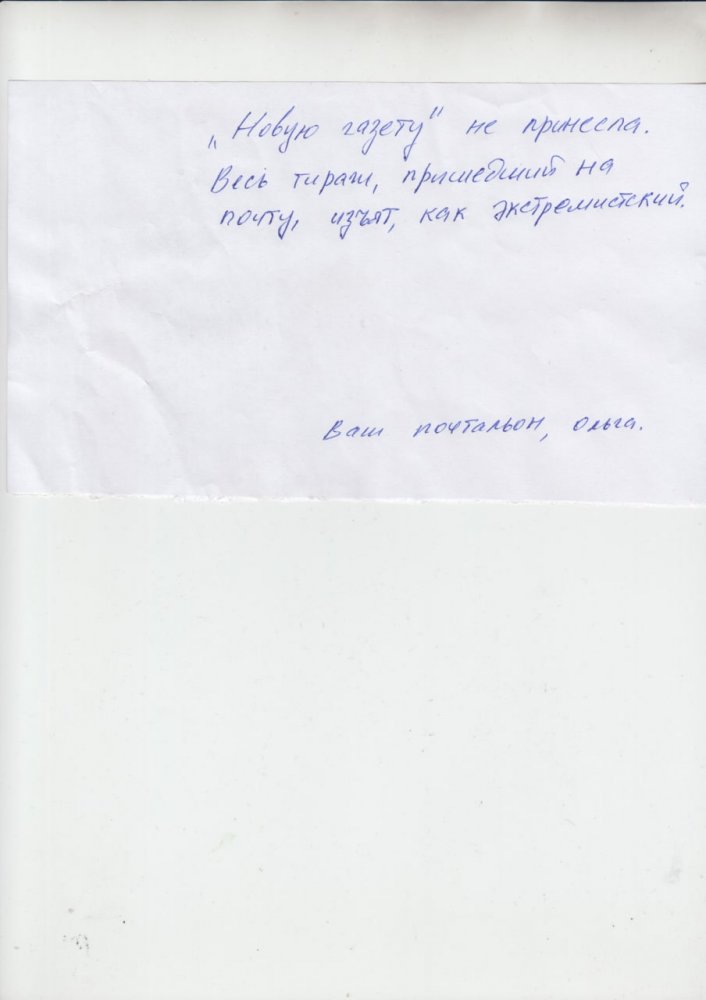 „Новую газету" не принесла.
Весь тираж, пришедший на
почту, изъят, как экстремистский.
Ваш почтальон, Ольга.